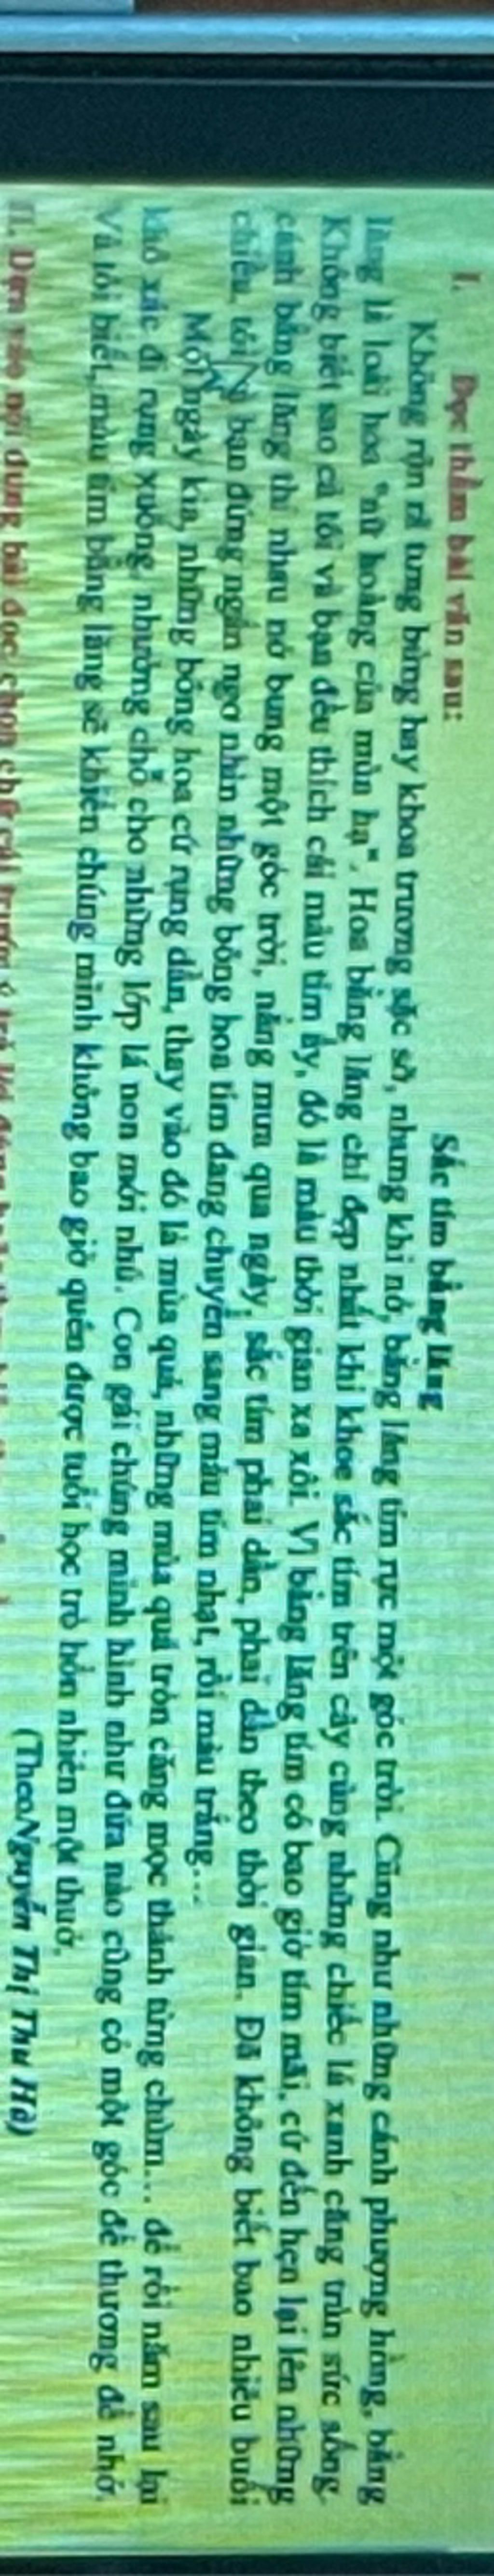 I. Đọc thầm bài văn sau:
Sắc tím bằng lăng
Không rộn rã tưng bừng hay khoa trương sặc sỡ, nhưng khi nở, bằng lăng tím rực một góc trời. Cũng như những cánh phượng hồng, bằng
lăng là loài hoa "nữ hoàng của mùa hạ". Hoa bằng lăng chỉ đẹp nhất khi khoe sắc tím trên cây cùng những chiếc lá xanh căng tràn sức sống.
Không biết sao cả tôi và bạn đều thích cái màu tím ấy, đó là màu thời gian xa xôi. Vì bằng lăng tím có bao giờ tím mãi, cứ đến hẹn lại lên những
cánh bằng lăng thi nhau nở bung một góc trời, nắng mưa qua ngày, sắc tím phai dần, phai dần theo thời gian. Đã không biết bao nhiêu buổi
chiều, tôi bạn đứng ngẩn ngơ nhìn những bông hoa tím đang chuyển sang màu tím nhạt, rồi màu trắng...
Một ngày kia, những bông hoa cứ rụng dần, thay vào đó là mùa quả, những mùa quả tròn căng mọc thành từng chùm... để rồi năm sau lại
khô xác đi rụng xuống, nhường chỗ cho những lớp lá non mới nhú. Con gái chúng mình hình như đứa nào cũng có một góc để thương để nhớ.
Và tôi biết, màu tím bằng lăng sẽ khiến chúng mình không bao giờ quên được tuổi học trò hồn nhiên một thuở.
(Theo Nguyễn Thị Thu Hà)
II. Dựa vào nội dung bài đọc chọn chữ cái trước ý trả lời đúng